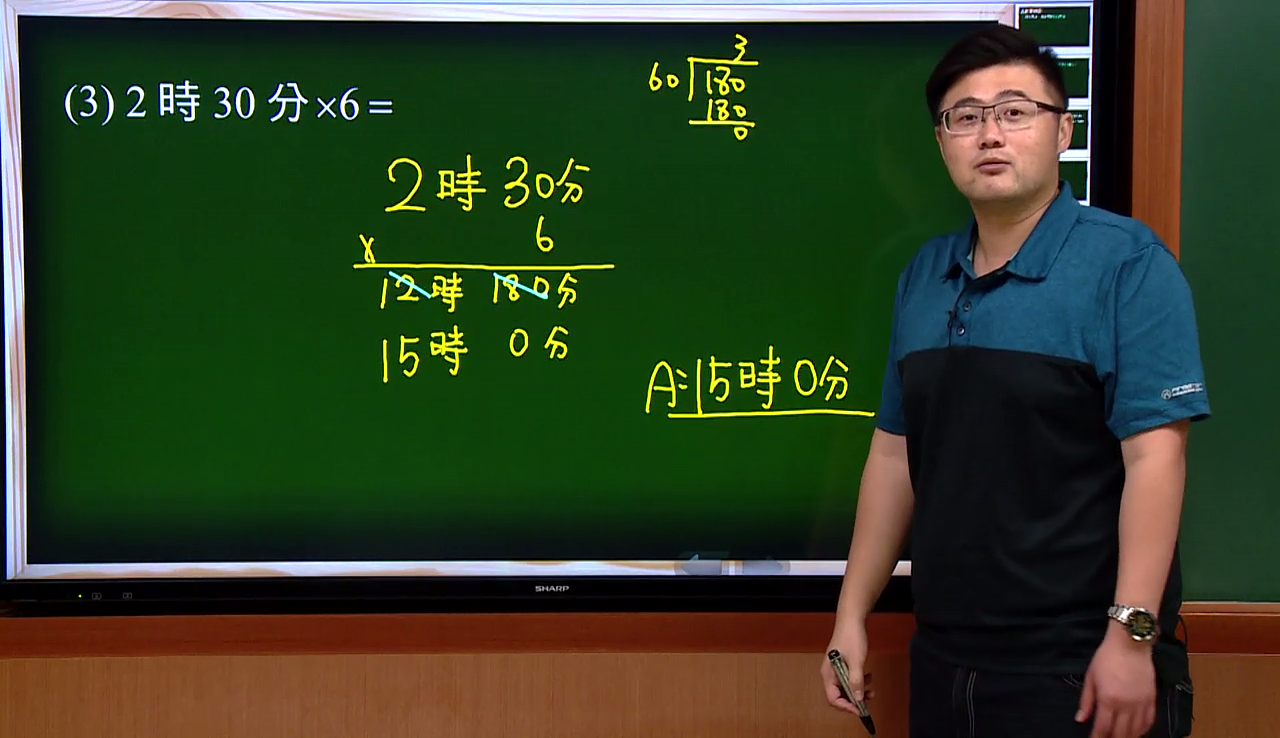 (3) 2 時 30 分 ×6 =
3
60 180
180
0
2 時 30分
x 6
12時 180分
15時 0分
A:15時 0分
SHARP